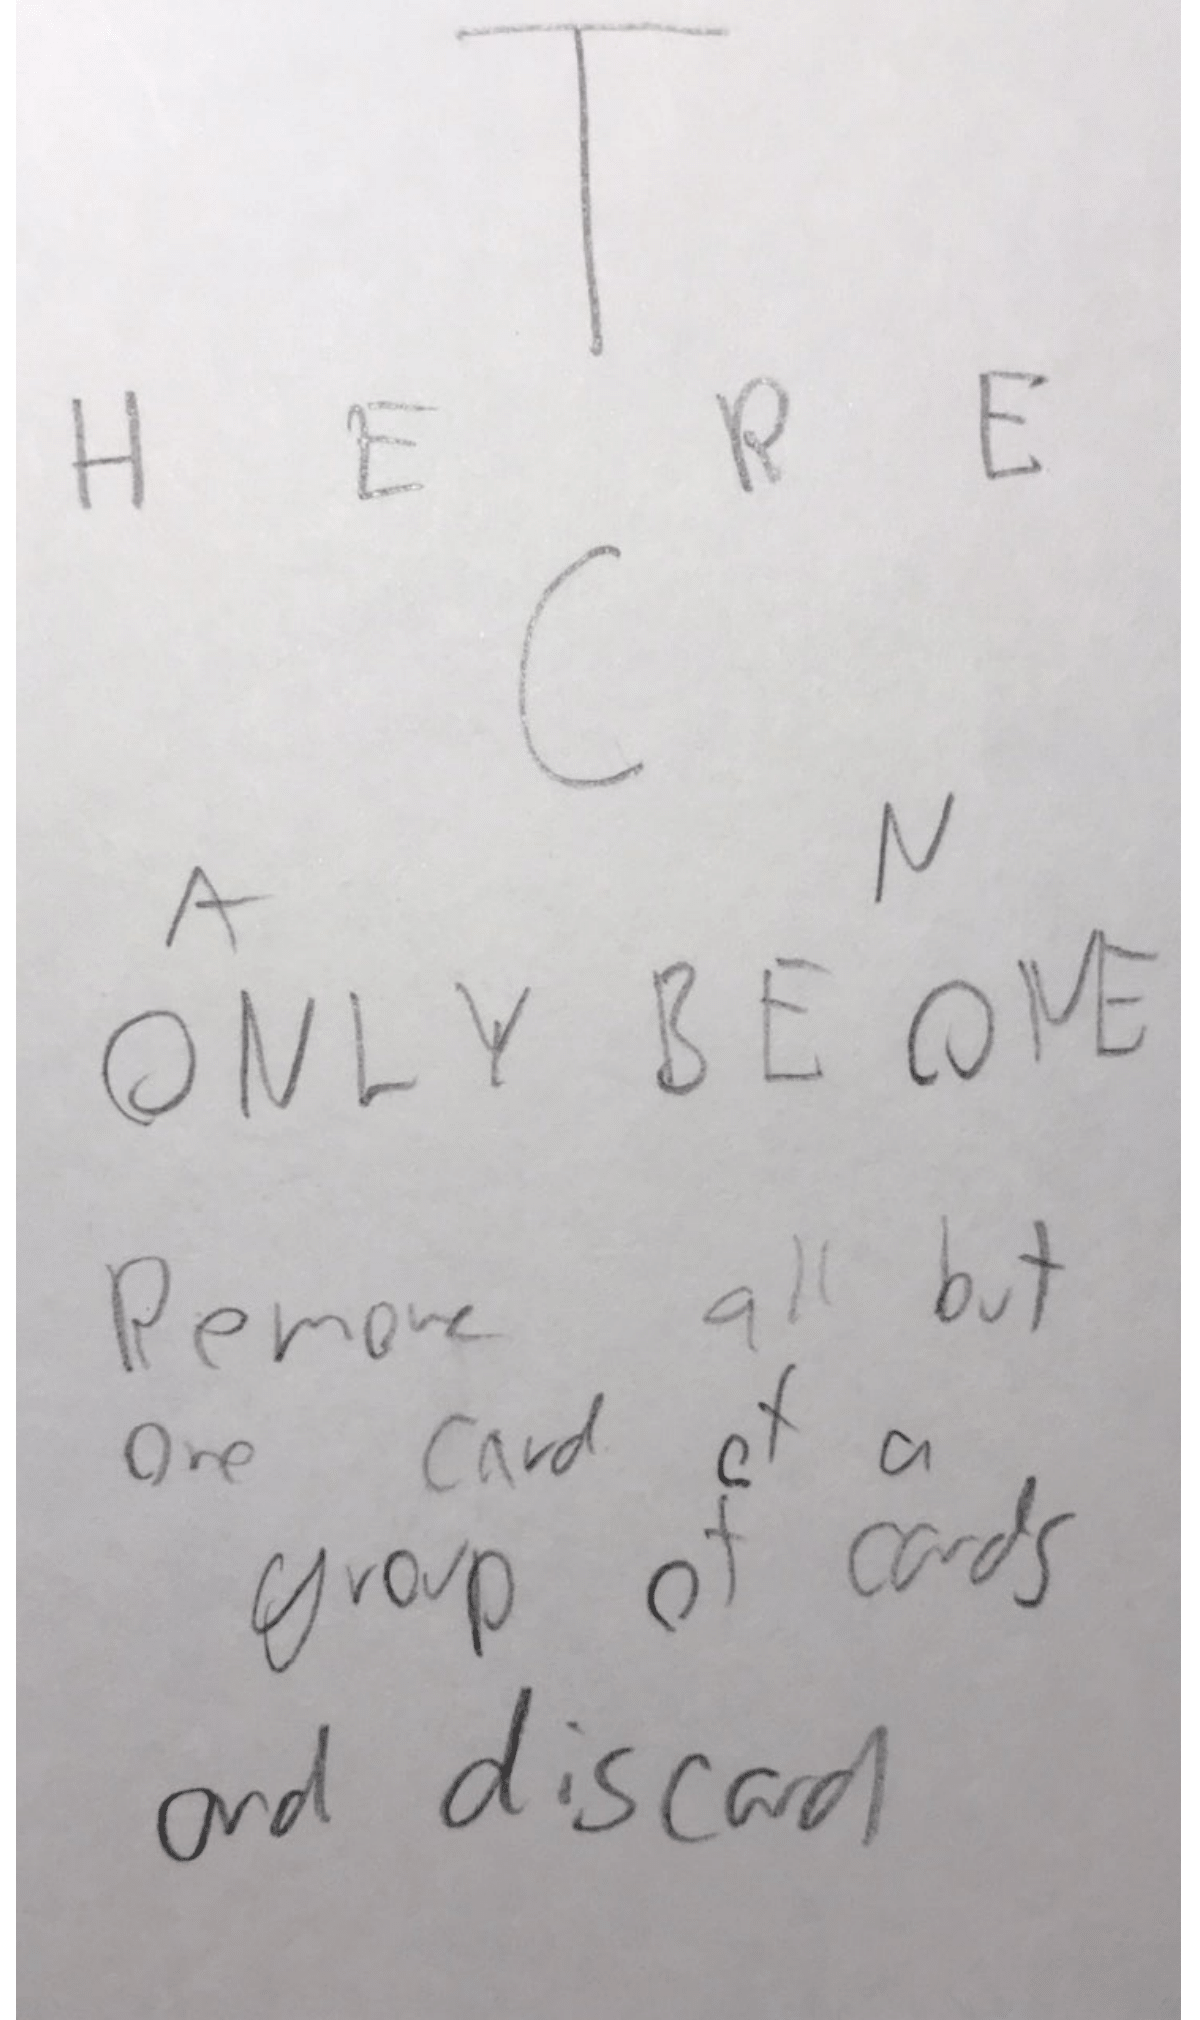 T
HERE
C
AN
ONLY BE ONE
Remove all but
one card of a
group of cards
and discard